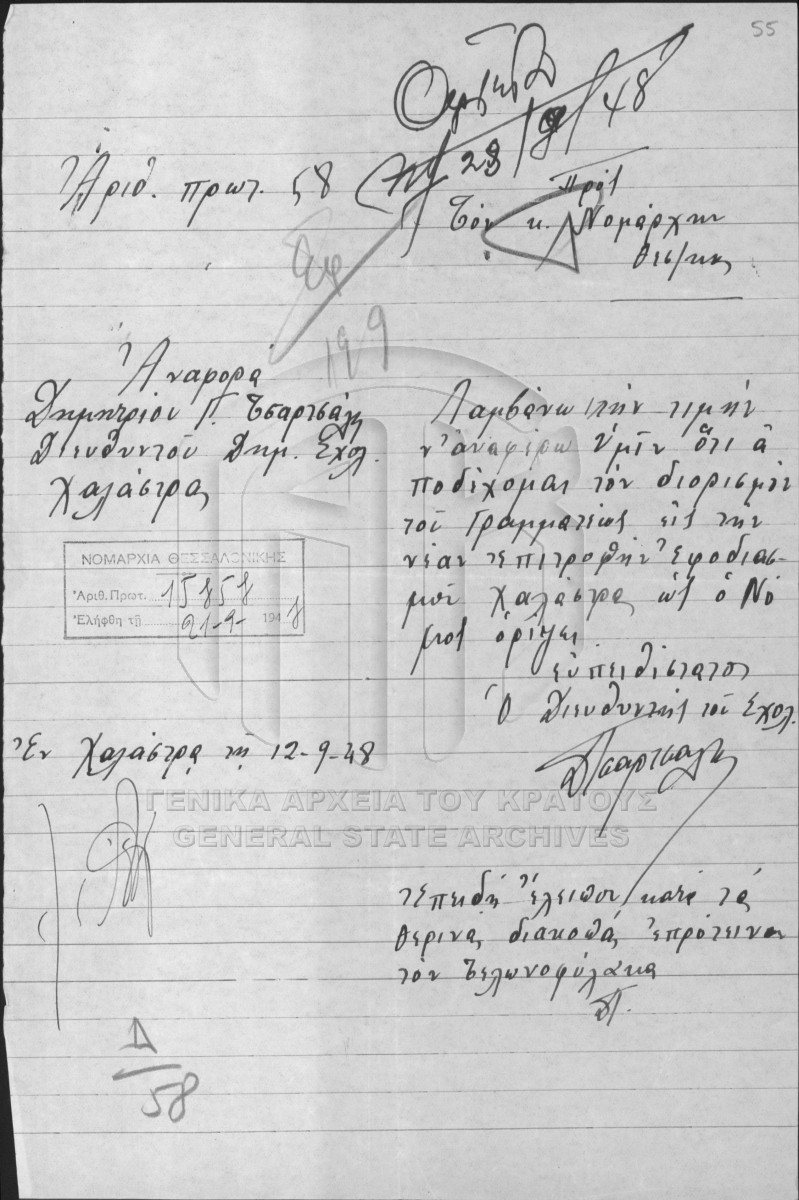 55
28/9/48
Ἀριθ. πρωτ. 58
Πρὸς
Τὸν κ. Νομάρχην
Θεσ/κης
199
Ἀναφορὰ
Δημητρίου Γ. Τσαρτσάλη
Διευθυντοῦ Δημ. Σχολ.
Χαλάστρας
Λαμβάνω τὴν τιμὴν
ν' ἀναφέρω Ὑμῖν ὅτι ἀ
ποδέχομαι τὸν διορισμὸν
τοῦ Γραμματέως εἰς τὴν
νέαν Ἐπιτροπὴν Ἐφοδιασ-
μοῦ Χαλάστρας ὡς ὁ Νό
μος ὁρίζει
εὐπειθέστατος
Ὁ Διευθυντὴς τοῦ Σχολ.
ΔΤσαρτσάλης
ΝΟΜΑΡΧΙΑ ΘΕΣΣΑΛΟΝΙΚΗΣ
Ἀριθ. Πρωτ. 15858
Ἐλήφθη τῇ 21-9- 1948
Ἐν Χαλάστρᾳ τῇ 12-9-48
ΓΕΝΙΚΑ ΑΡΧΕΙΑ ΤΟΥ ΚΡΑΤΟΥΣ
GENERAL STATE ARCHIVES
Ἐπειδὴ ἔλειπον κατὰ τὰς
θερινὰς διακοπὰς ἐπρότεινον
τὸν Τελωνοφύλακα
ΔΤ.
Δ
58